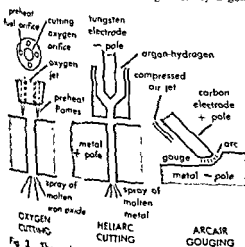 preheat
fuel orifice
cutting
oxygen
orifice
oxygen
jet
preheat
flames
spray of
molten
iron oxide
OXYGEN
CUTTING
tungsten
electrode
– pole
argon-hydrogen
metal
+ pole
spray of
molten
metal
HELIARC
CUTTING
compressed
air jet
carbon
electrode
+ pole
arc
gouge
metal – pole
ARCAIR
GOUGING
Fig 1